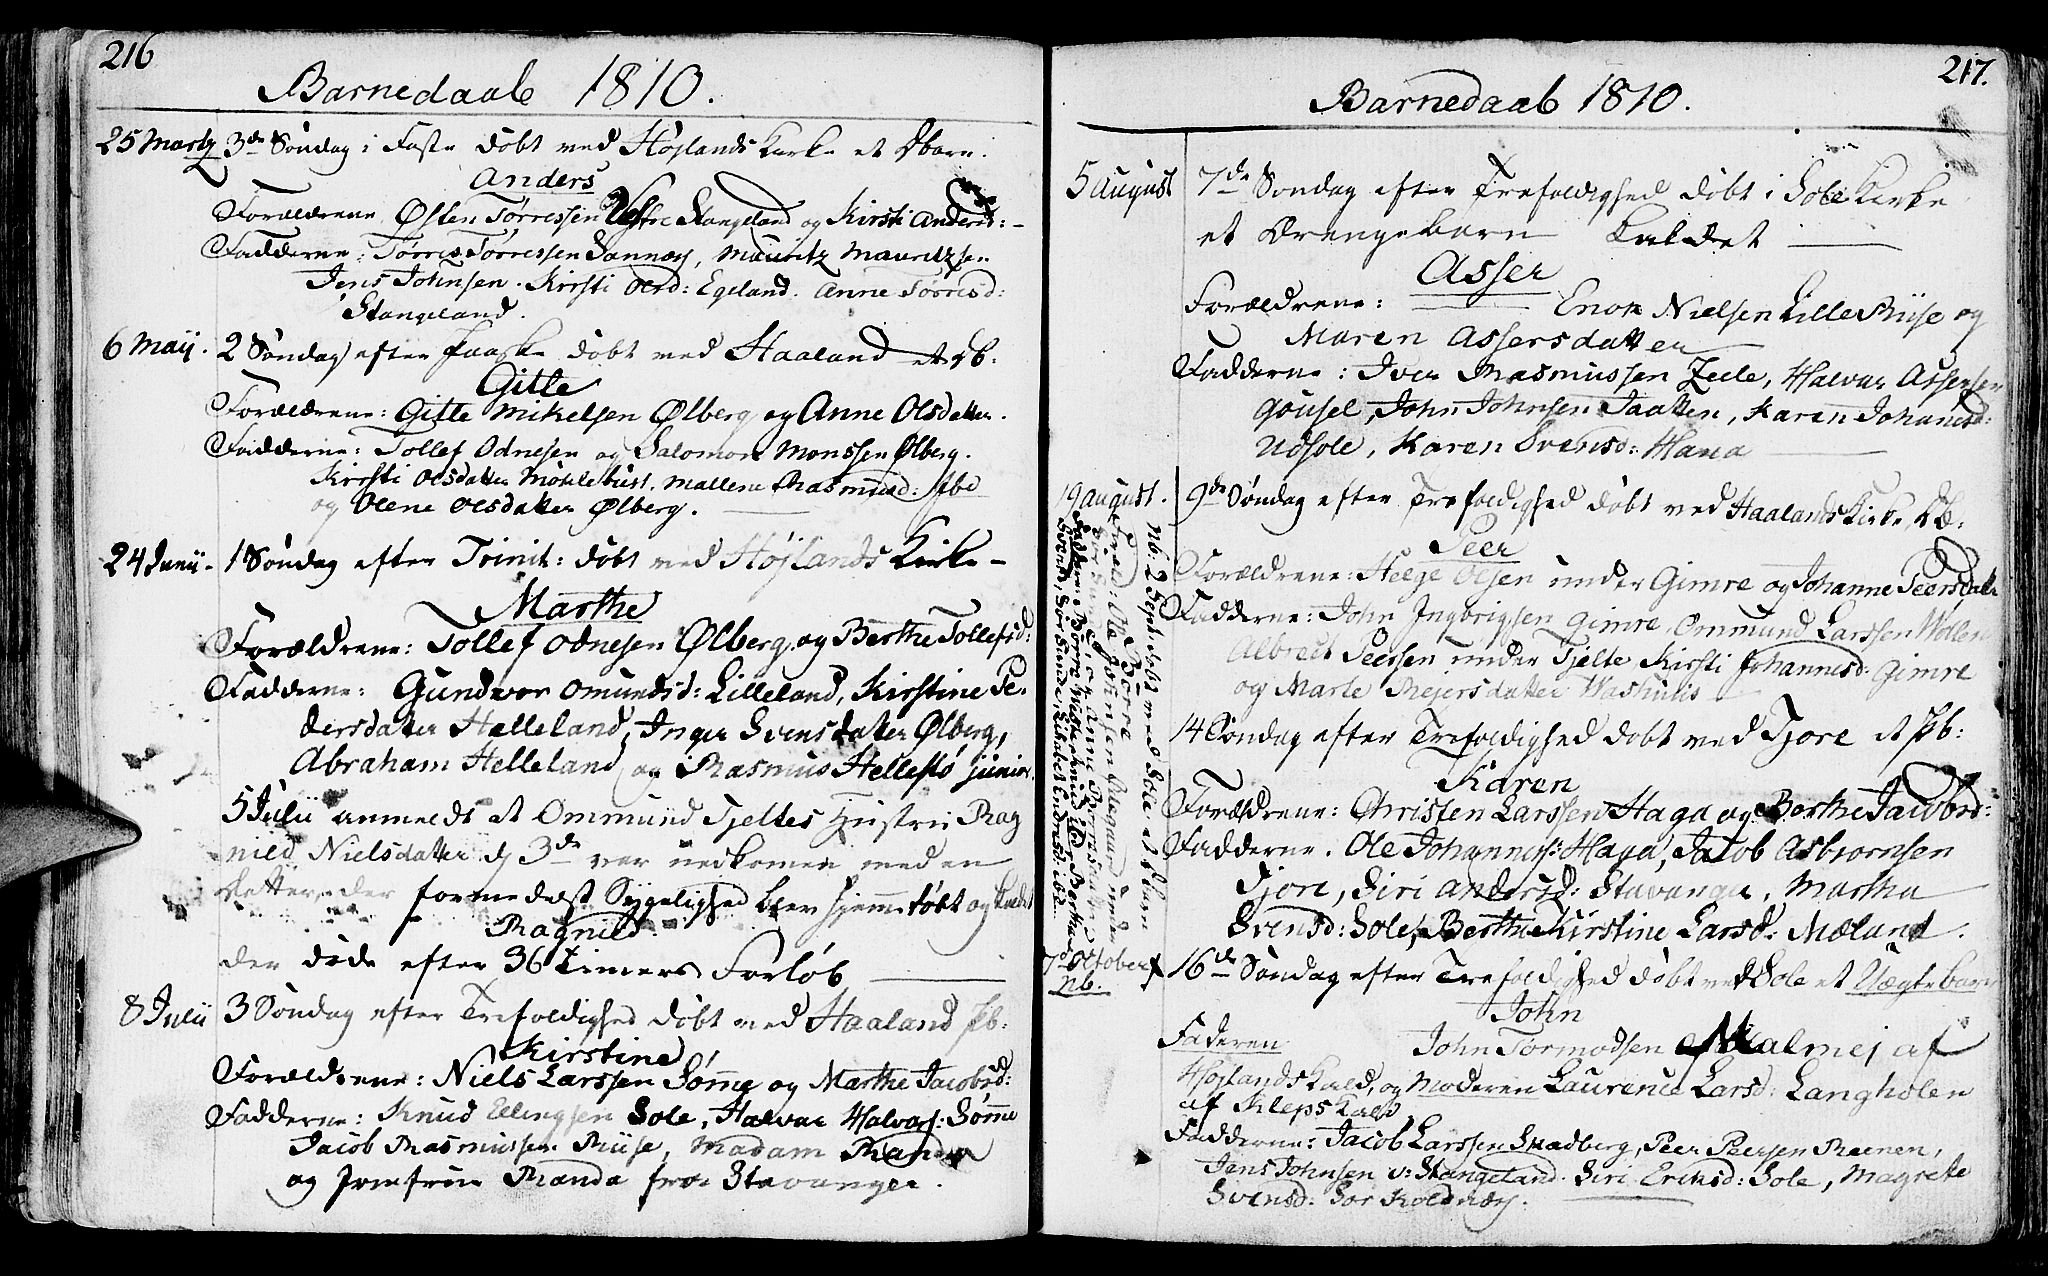 216
Barnedaab 1810.
25 Marty 3de Søndag i Faste døbt ved Højlands Kirke et Dbarn.
Anders
Forældrene Østen Tørressen Vestre Stangeland og Kirsti Andersd:
Fadderne: Tørris Tørressen Sannæs, Mauritz Mauritzsen
Jens Johnsen. Kirsti Olsd: Egeland. Anne Tørrisd:
Stangeland.
6 Maij. 2 Søndag efter Paaske døbt ved Haaland et Db.
Gitle
Forældrene: Gitle Mikelsen Ølberg og Anne Olsdatter.
Fadderne: Tollef Odnesen og Salomon Monssen Ølberg.
Kirsti Olsdatter Møklebust, Mallene Rasmusd: ibd
og Olene Olsdatter Ølberg.
24 Junii 1 Søndag efter Trinit: døbt ved Højlands Kirke
Marthe
Forældrene: Tollef Odnesen Ølberg og Berthe Tollefsd:
Fadderne: Gundvor Omundsd: Lilleland, Kirstine Pe-
dersdatter Helleland, Inger Svensdatter Ølberg,
Abraham Helleland og Rasmus Hellestø junior.
5 Julii anmeldt at Ommund Tjeltes Hustru Rag
nild Nielsdatter d 3de var nedkomen med en
datter, der formedelst Sygelighed blev hjemmedøbt og kaldet
Ragnild.
der døde efter 36 Timers Forløb
8 Julii 3 Søndag efter Trefoldighed døbt ved Haaland Pb.
Kirstine
Forældrene: Niels Larssen Sømme og Marthe Jacobsd:
Fadderne: Knud Ellingsen Sole, Halvar Halvars: Sømme
Jacob Rasmussen Riise, Madam Randa
og Jomfrue Randa fra Stavanger.
217.
Barnedaab 1810.
5 August 7de Søndag efter Trefoldighed døbt i Sole Kirke
et Drengebarn kaldet
Asser
Forældrene: Enok Nielsen Lille Riise og
Maren Assersdatter
Fadderne: Iver Rasmussen Zeele, Halvar Assersen
Gousel, John Johnsen Taatten, Karen Johanesd:
Udsole, Karen Svensd: Hana
19 August. 9de Søndag efter Trefoldighed døbt ved Haalands Kirke Db.
Peer
Forældrene: Helge Olsen under Gimre og Johanne Peersdatter
Fadderne: John Ingbrigsen Gimre, Ommund Larssen
Albrect Peersen under Tjelte Kirsti Johannesd: Gimre
og Marte Reiersdatter
Nb: 2 Sept: døbt ved Sole et Barn
Børre
Foræld: Ole Johnsen under
og Anne Børresdatter
Fadderne: Børre Knud
14 Søndag efter Trefoldighed døbt ved Tjore et Pb:
Karen
Forældrene: Christen Larssen Haga og Berthe Jacobsd:
Fadderne. Ole Johannes: Haga, Jacob Asbrornsen
Tjore, Siri Andersd: Stavanger, Martha
Svensd: Sole, Berthe Kirstine Larsd: Mæland.
7d October Nb. 16de Søndag efter Trefoldighed døbt ved Sole et Uægte barn
John
Faderen John Tormodsen Malmej af
Højlands Kald, og Moderen Laurence Larsd: Langholen
af Kleps Kald
Fadderne: Jacob Larssen Snadberg, Peer Peersen Reenen,
Jens Johnsen v: Stangeland. Siri Eriksd: Sole, Magrete
Svensd: Sør Koldnæs.